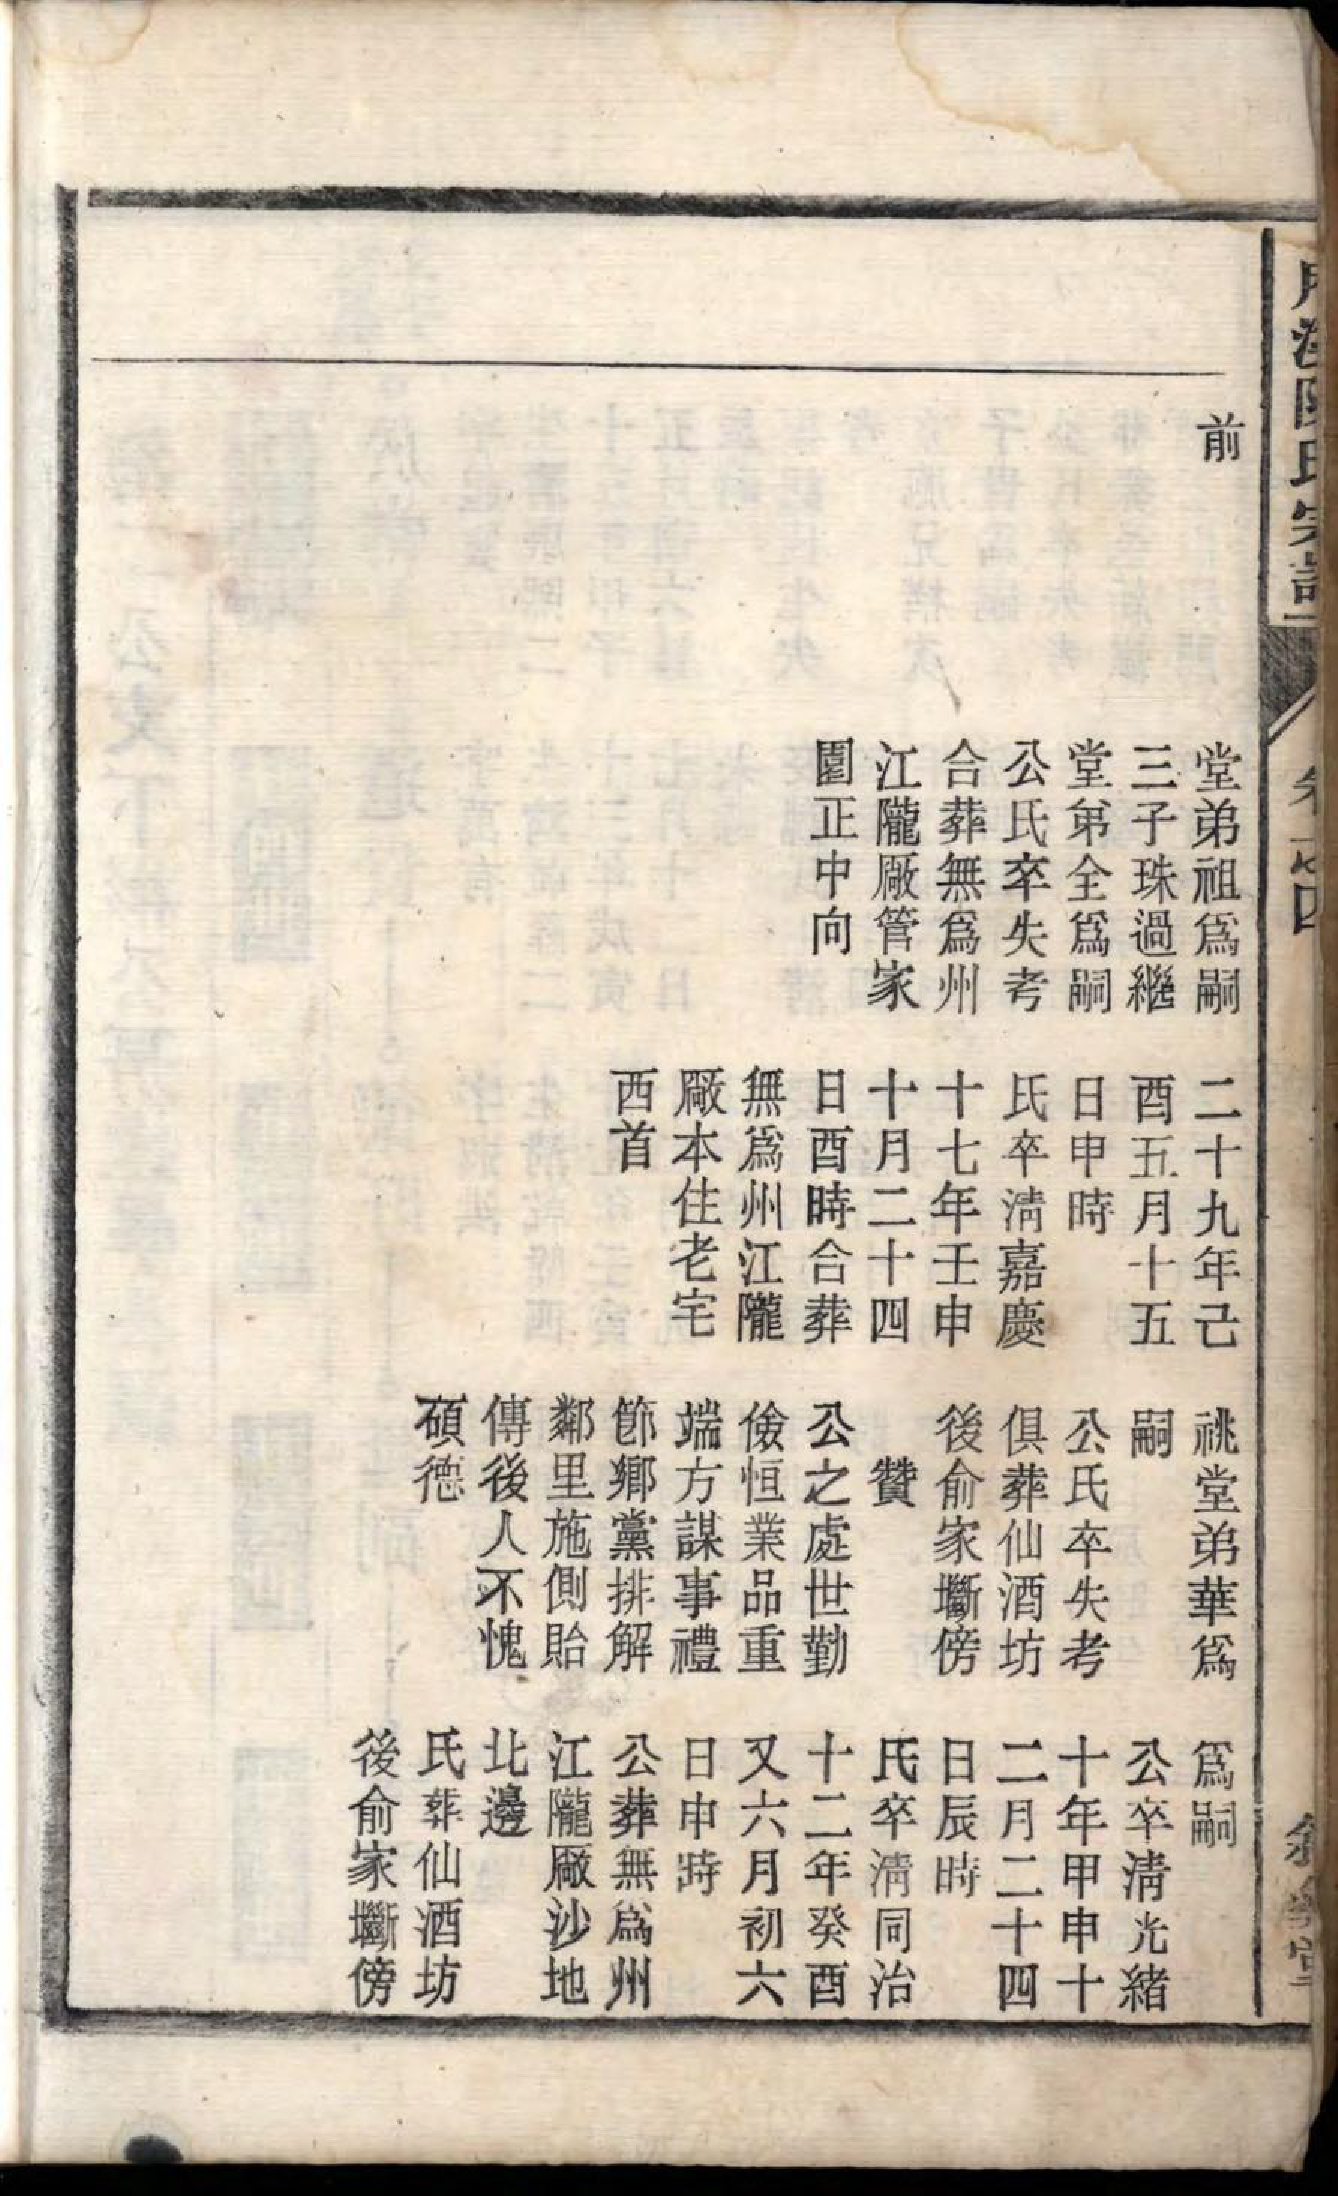 前
堂弟祖爲嗣
三子珠過繼
堂弟全爲嗣
公氏卒失考
合葬無爲州
江隴廠管家
圍正中向
二十九年己
酉五月十五
日申時
氏卒淸嘉慶
十七年壬申
十月二十四
日酉時合葬
無爲州江隴
廠本住老宅
西首
祧堂弟華爲
嗣
公氏卒失考
俱葬仙酒坊
後俞家壩傍
贊
公之處世勤
儉恒業品重
端方謀事禮
節鄉黨排解
鄰里施側貽
傳後人不愧
碩德
爲嗣
公卒淸光緒
十年甲申十
二月二十四
日辰時
氏卒淸同治
十二年癸酉
又六月初六
日申時
公葬無爲州
江隴廠沙地
北邊
氏葬仙酒坊
後俞家壩傍
氏宗譜
卷之四